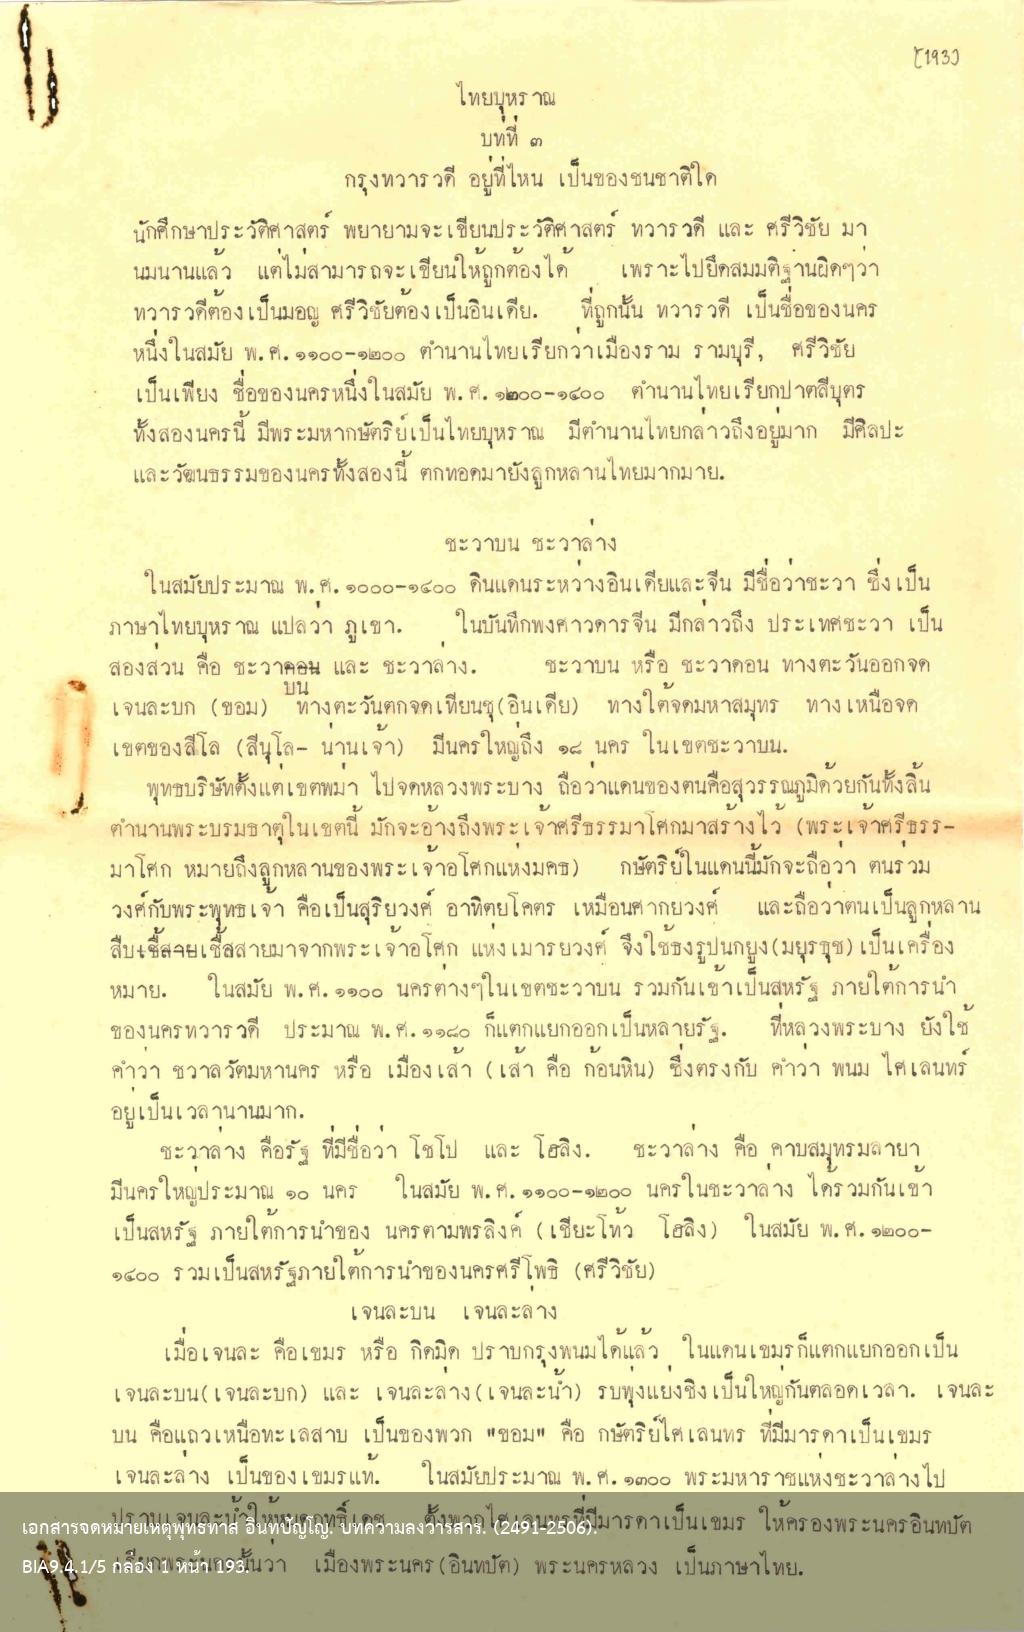 [193]
ไทยบุหราณ
บทที่ ๓
กรุงทวารวดี อยู่ที่ไหน เป็นของชนชาติใด
นักศึกษาประวัติศาสตร์ พยายามจะเขียนประวัติศาสตร์ ทวารวดี และ ศรีวิชัย มา
นมนานแล้ว แต่ไม่สามารถจะเขียนให้ถูกต้องได้ เพราะไปยึดสมมติฐานผิดๆว่า
ทวารวดีต้องเป็นมอญ ศรีวิชัยต้องเป็นอินเดีย. ที่ถูกนั้น ทวารวดี เป็นชื่อของนคร
หนึ่งในสมัย พ.ศ.๑๑๐๐-๑๒๐๐ ตำนานไทยเรียกว่าเมืองราม รามบุรี, ศรีวิชัย
เป็นเพียง ชื่อของนครหนึ่งในสมัย พ.ศ.๑๒๐๐-๑๔๐๐ ตำนานไทยเรียกปาตลีบุตร
ทั้งสองนครนี้ มีพระมหากษัตริย์เป็นไทยบุหราณ มีตำนานไทยกล่าวถึงอยู่มาก มีศิลปะ
และวัฒนธรรมของนครทั้งสองนี้ ตกทอดมายังลูกหลานไทยมากมาย.
ชะวาบน ชะวาล่าง
ในสมัยประมาณ พ.ศ.๑๐๐๐-๑๔๐๐ ดินแดนระหว่างอินเดียและจีน มีชื่อว่าชะวา ซึ่งเป็น
ภาษาไทยบุหราณ แปลว่า ภูเขา. ในบันทึกพงศาวดารจีน มีกล่าวถึง ประเทศชะวา เป็น
สองส่วน คือ ชะวาดอน และ ชะวาล่าง. ชะวาบน หรือ ชะวาดอน ทางตะวันออกจด
บน
เจนละบก (ขอม) ทางตะวันตกจดเทียนชุ(อินเดีย) ทางใต้จดมหาสมุทร ทางเหนือจด
เขตของสีโล (สีนุโล- น่านเจ้า) มีนครใหญ่ถึง ๑๘ นคร ในเขตชะวาบน.
พุทธบริษัทตั้งแต่เขตพม่า ไปจดหลวงพระบาง ถือว่าแดนของตนคือสุวรรณภูมิด้วยกันทั้งสิ้น
ตำนานพระบรมธาตุในเขตนี้ มักจะอ้างถึงพระเจ้าศรีธรรมาโศกมาสร้างไว้ (พระเจ้าศรีธรร-
มาโศก หมายถึงลูกหลานของพระเจ้าอโศกแห่งมคธ) กษัตริย์ในแดนนี้มักจะถือว่า ตนร่วม
วงศ์กับพระพุทธเจ้า คือเป็นสุริยวงศ์ อาทิตยโคตร เหมือนศากยวงศ์ และถือว่าตนเป็นลูกหลาน
สืบเชื้อสายเชื้อสายมาจากพระเจ้าอโศก แห่งเมารยวงศ์ จึงใช้ธงรูปนกยูง(มยุรธุช)เป็นเครื่อง
หมาย. ในสมัย พ.ศ.๑๑๐๐ นครต่างๆในเขตชะวาบน รวมกันเข้าเป็นสหรัฐ ภายใต้การนำ
ของนครทวารวดี ประมาณ พ.ศ.๑๑๘๐ ก็แตกแยกออกเป็นหลายรัฐ. ที่หลวงพระบาง ยังใช้
คำว่า ชวาลวัตมหานคร หรือ เมืองเส้า (เส้า คือ ก้อนหิน) ซึ่งตรงกับ คำว่า พนม ไศเลนทร์
อยู่เป็นเวลานานมาก.
ชะวาล่าง คือรัฐ ที่มีชื่อว่า โชโป และ โฮลิง. ชะวาล่าง คือ คาบสมุทรมลายา
มีนครใหญ่ประมาณ ๑๐ นคร ในสมัย พ.ศ.๑๑๐๐-๑๒๐๐ นครในชะวาล่าง ได้รวมกันเข้า
เป็นสหรัฐ ภายใต้การนำของ นครตามพรลิงค์ (เชียะโท้ว โฮลิง) ในสมัย พ.ศ.๑๒๐๐-
๑๔๐๐ รวมเป็นสหรัฐภายใต้การนำของนครศรีโพธิ (ศรีวิชัย)
เจนละบน เจนละล่าง
เมื่อเจนละ คือเขมร หรือ กิดมิด ปราบกรุงพนมได้แล้ว ในแดนเขมรก็แตกแยกออกเป็น
เจนละบน(เจนละบก) และ เจนละล่าง(เจนละน้ำ) รบพุ่งแย่งชิงเป็นใหญ่กันตลอดเวลา. เจนละ
บน คือแถวเหนือทะเลสาบ เป็นของพวก "ขอม" คือ กษัตริย์ไศเลนทร ที่มีมารดาเป็นเขมร
เจนละล่าง เป็นของเขมรแท้. ในสมัยประมาณ พ.ศ.๑๓๐๐ พระมหาราชแห่งชะวาล่างไป
ปราบเจนละน้ำให้หมดฤทธิ์เดช ตั้งพวกไศเลนทรที่มีมารดาเป็นเขมร ให้ครองพระนครอินทบัต
เรียกพระนครนั้นว่า เมืองพระนคร(อินทบัต) พระนครหลวง เป็นภาษาไทย.
เอกสารจดหมายเหตุพุทธทาส อินทปัญโญ. บทความลงวารสาร. (2491-2506).
BIA9.4.1/5 กล่อง 1 หน้า 193.